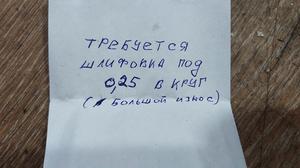 ТРЕБУЕТСЯ
ШЛИФОВКА ПОД
0,25 В КРУГ
(БОЛЬШОЙ ИЗНОС)